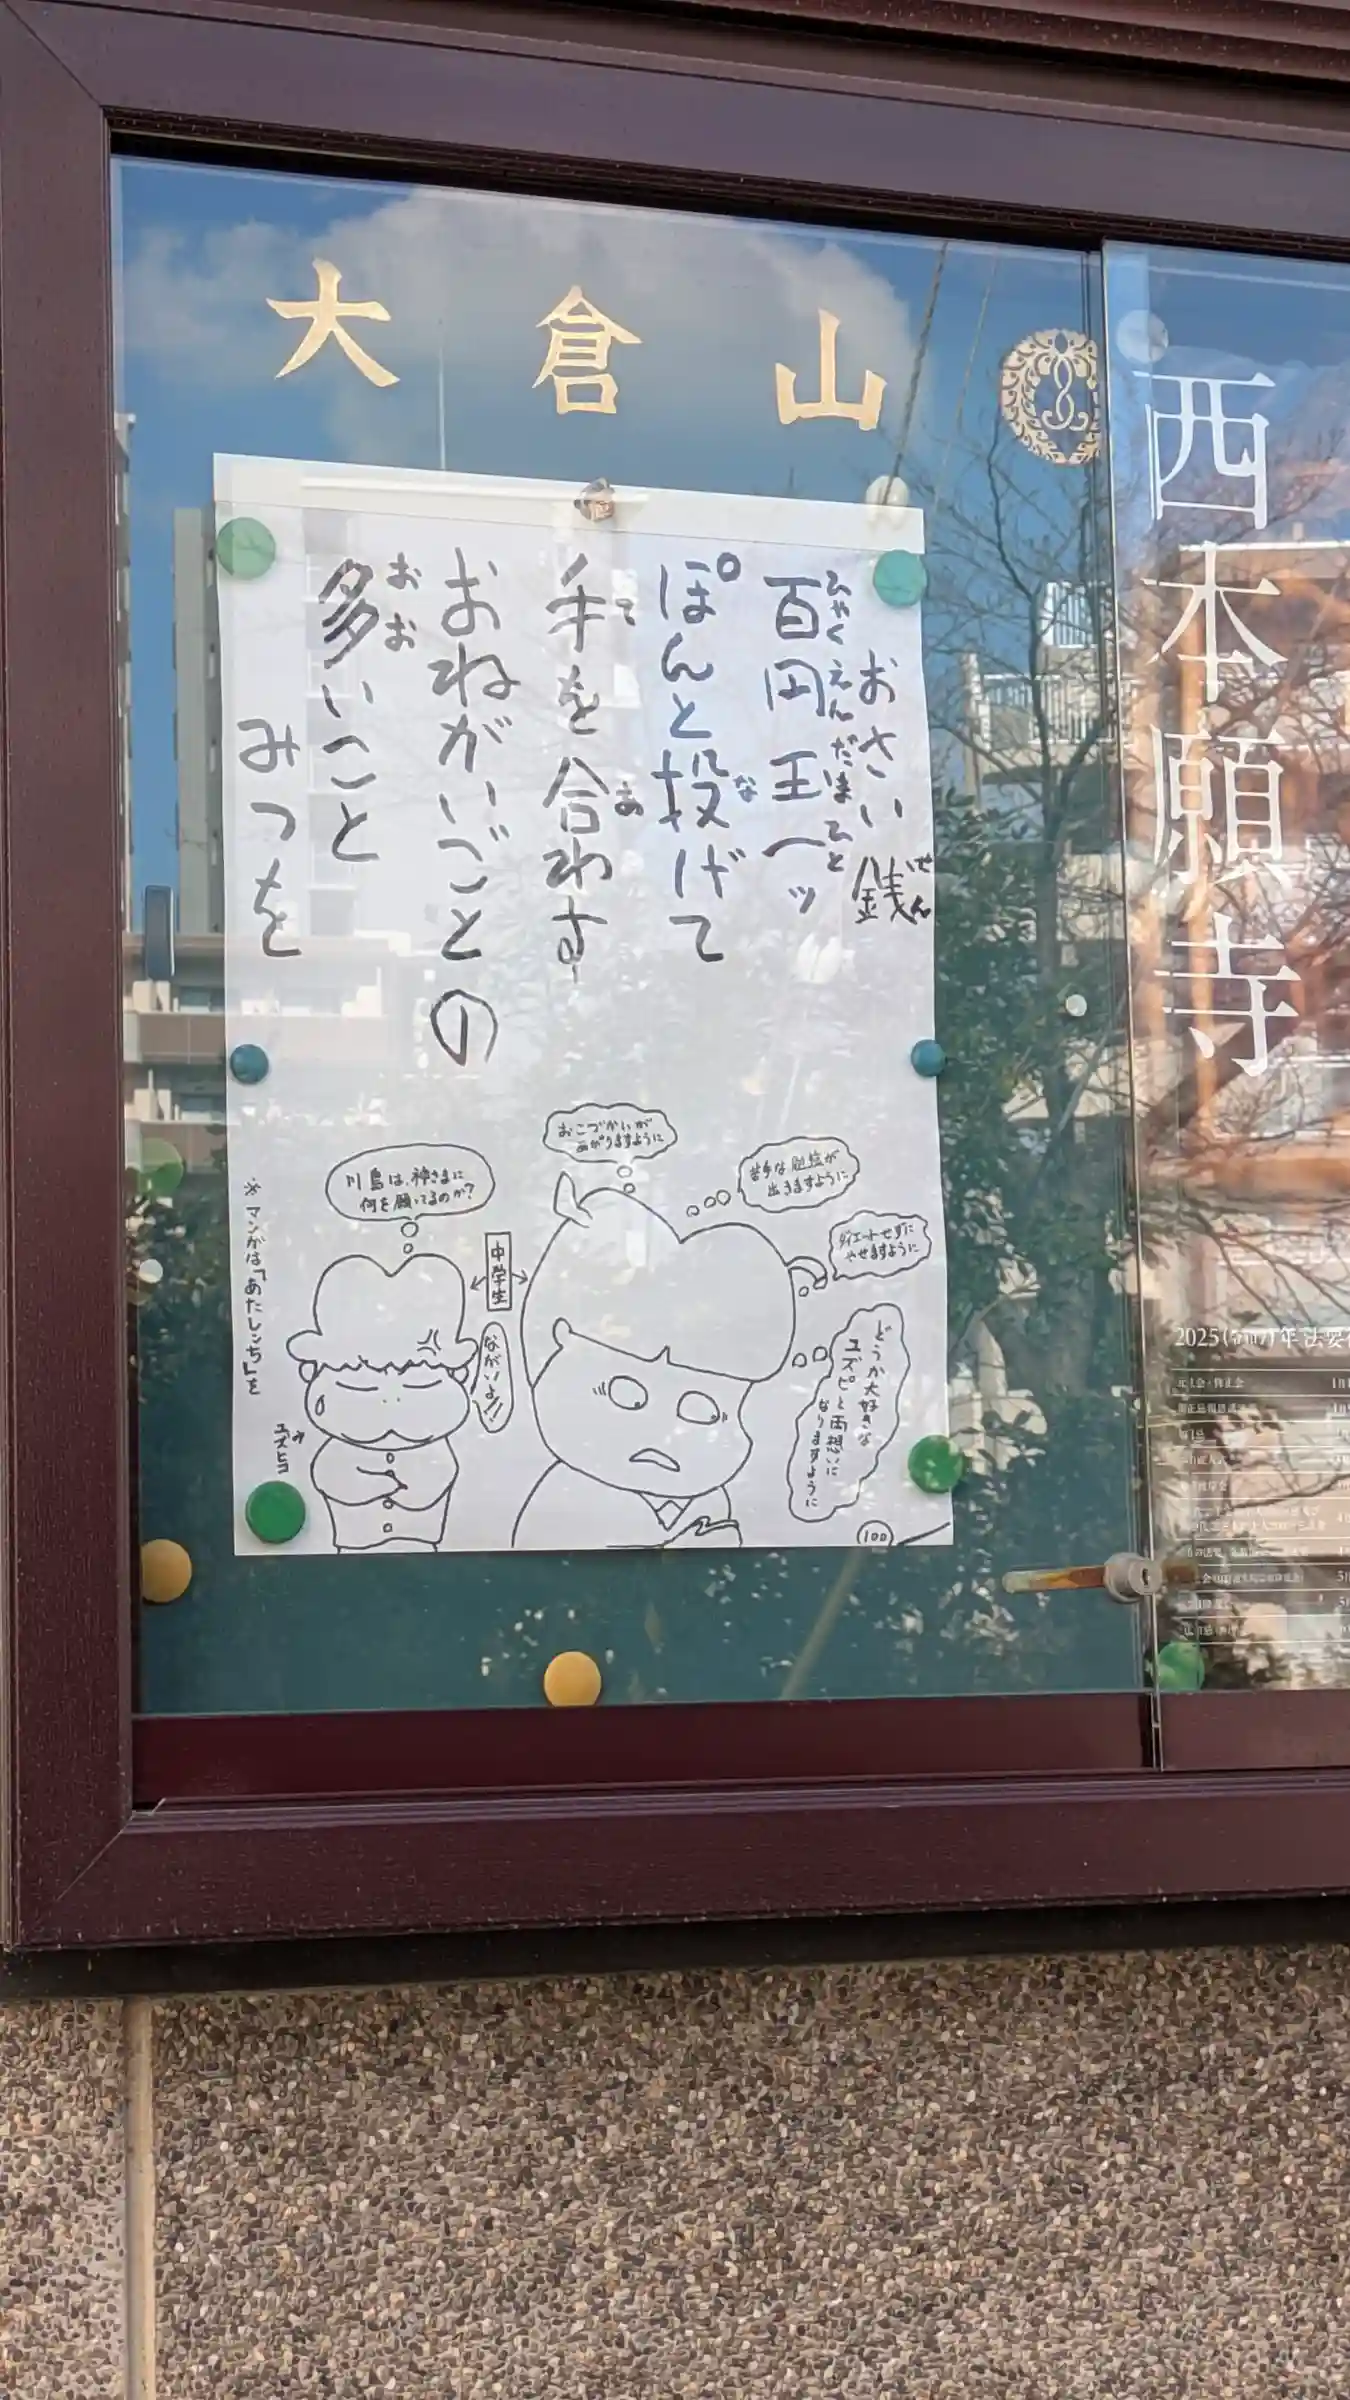 大倉山
西本願寺
おさい銭
せん
百円玉一ッ
ひゃくえんだまひと
ぽんと投げて
な
手を合わす
て
あ
おねがいごとの
多いこと
おお
みつを
おこづかいが
あがりますように
苦手な
出きますように
ダイエットせずに
やせますように
どうか大好きな
ユズピと両想いに
なりますように
川島は、神さまに
何を願ってるのか?
中学生
ながいよ!!
ユズヒコ
※マンガは「あたしンち」を
100
2025(令和7)年法要